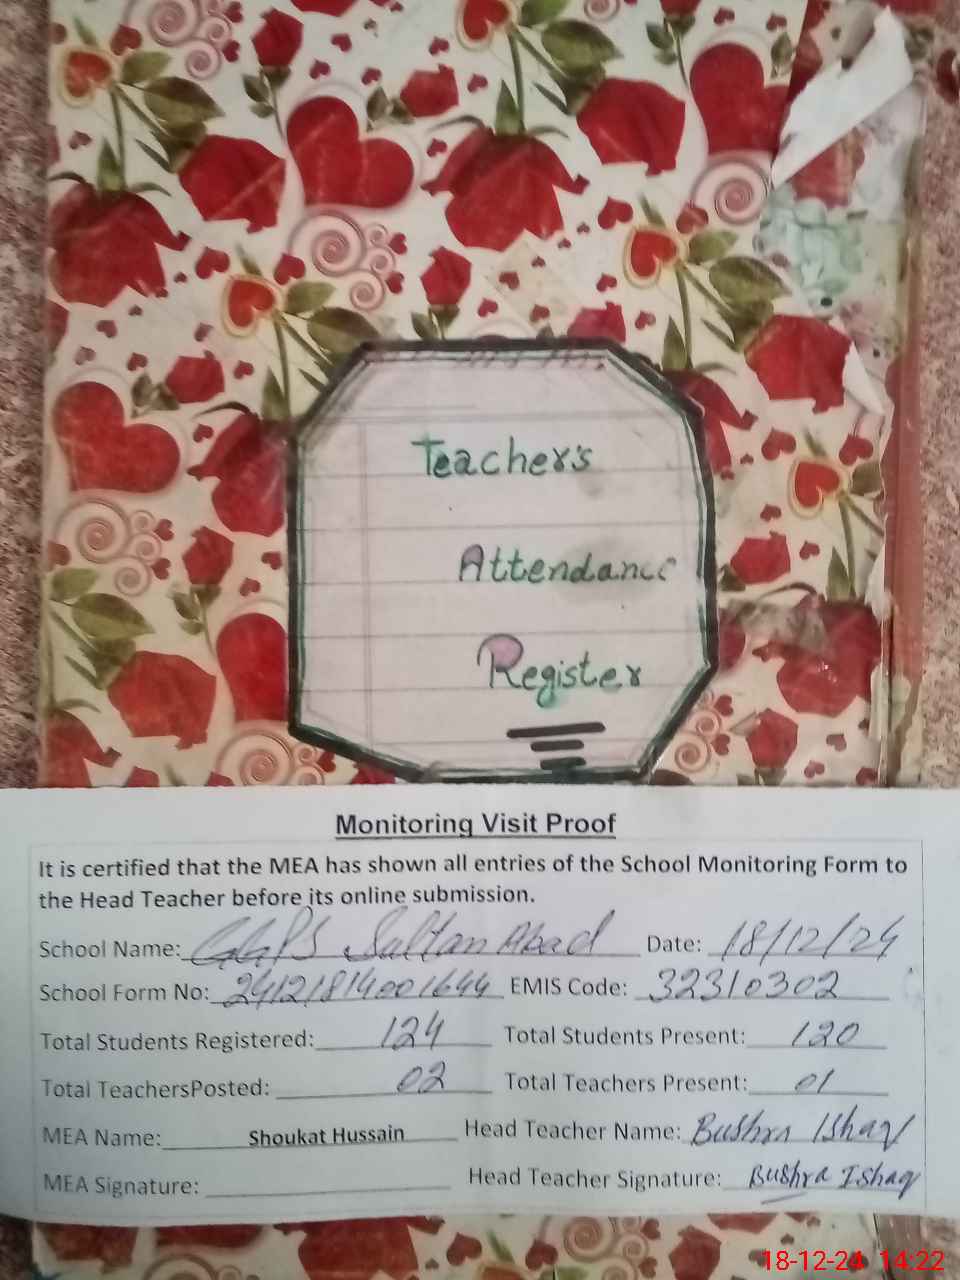 Teacher's
Attendance
Register
Monitoring Visit Proof
It is certified that the MEA has shown all entries of the School Monitoring Form to
the Head Teacher before its online submission.
School Name: GGPS Sultan Abad Date: 18/12/24
School Form No: 24121814001644 EMIS Code: 32310302
Total Students Registered: 124 Total Students Present: 120
Total TeachersPosted: 02 Total Teachers Present: 01
MEA Name: Shoukat Hussain Head Teacher Name: Bushra Ishaq
MEA Signature: Head Teacher Signature: Bushra Ishaq
18-12-24 14:22